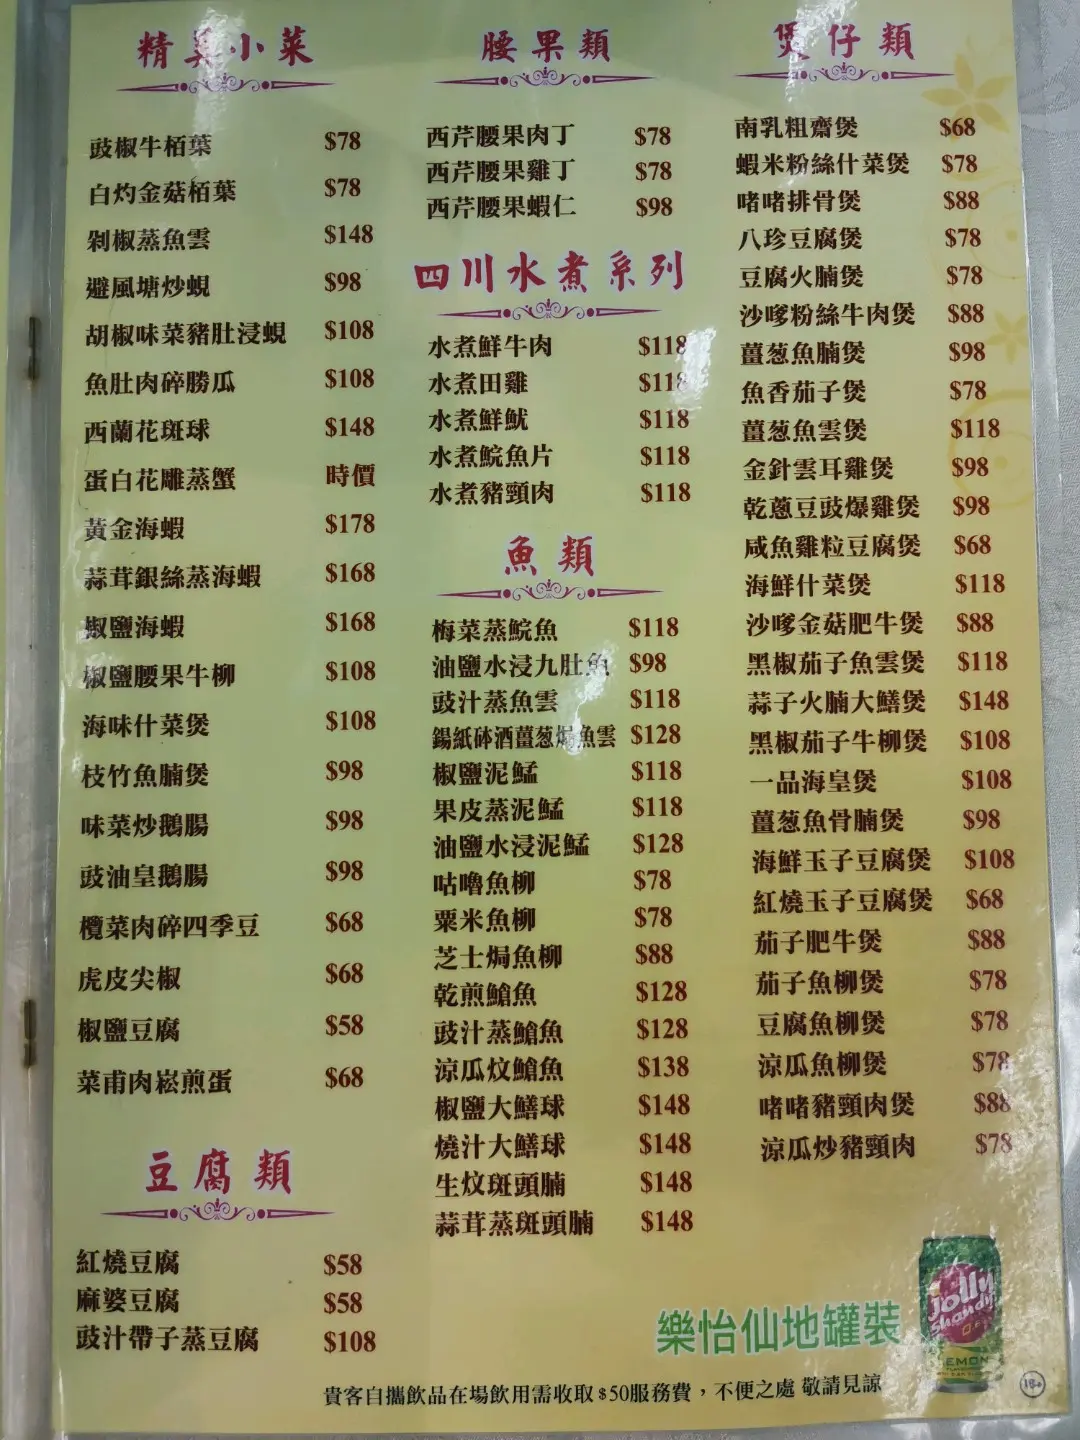 精美小菜
豉椒牛栢葉 $78
白灼金菇栢葉 $78
剁椒蒸魚雲 $148
避風塘炒蜆 $98
胡椒味菜豬肚浸蜆 $108
魚肚肉碎勝瓜 $108
西蘭花斑球 $148
蛋白花雕蒸蟹 時價
黃金海蝦 $178
蒜茸銀絲蒸海蝦 $168
椒鹽海蝦 $168
椒鹽腰果牛柳 $108
海味什菜煲 $108
枝竹魚腩煲 $98
味菜炒鵝腸 $98
豉油皇鵝腸 $98
欖菜肉碎四季豆 $68
虎皮尖椒 $68
椒鹽豆腐 $58
菜甫肉崧煎蛋 $68
豆腐類
紅燒豆腐 $58
麻婆豆腐 $58
豉汁帶子蒸豆腐 $108
腰果類
西芹腰果肉丁 $78
西芹腰果雞丁 $78
西芹腰果蝦仁 $98
四川水煮系列
水煮鮮牛肉 $118
水煮田雞 $118
水煮鮮魷 $118
水煮鯇魚片 $118
水煮豬頸肉 $118
魚類
梅菜蒸鯇魚 $118
油鹽水浸九肚魚 $98
豉汁蒸魚雲 $118
錫紙砵酒薑葱焗魚雲 $128
椒鹽泥鯭 $118
果皮蒸泥鯭 $118
油鹽水浸泥鯭 $128
咕嚕魚柳 $78
粟米魚柳 $78
芝士焗魚柳 $88
乾煎鱠魚 $128
豉汁蒸鱠魚 $128
涼瓜炆鱠魚 $138
椒鹽大鱔球 $148
燒汁大鱔球 $148
生炆斑頭腩 $148
蒜茸蒸斑頭腩 $148
煲仔類
南乳粗齋煲 $68
蝦米粉絲什菜煲 $78
啫啫排骨煲 $88
八珍豆腐煲 $78
豆腐火腩煲 $78
沙嗲粉絲牛肉煲 $88
薑葱魚腩煲 $98
魚香茄子煲 $78
薑葱魚雲煲 $118
金針雲耳雞煲 $98
乾蔥豆豉爆雞煲 $98
咸魚雞粒豆腐煲 $68
海鮮什菜煲 $118
沙嗲金菇肥牛煲 $88
黑椒茄子魚雲煲 $118
蒜子火腩大鱔煲 $148
黑椒茄子牛柳煲 $108
一品海皇煲 $108
薑葱魚骨腩煲 $98
海鮮玉子豆腐煲 $108
紅燒玉子豆腐煲 $68
茄子肥牛煲 $88
茄子魚柳煲 $78
豆腐魚柳煲 $78
涼瓜魚柳煲 $78
啫啫豬頸肉煲 $88
涼瓜炒豬頸肉 $78
樂怡仙地罐裝
Jolly
Shandy
LEMON
18+
貴客自攜飲品在場飲用需收取$50服務費，不便之處 敬請見諒